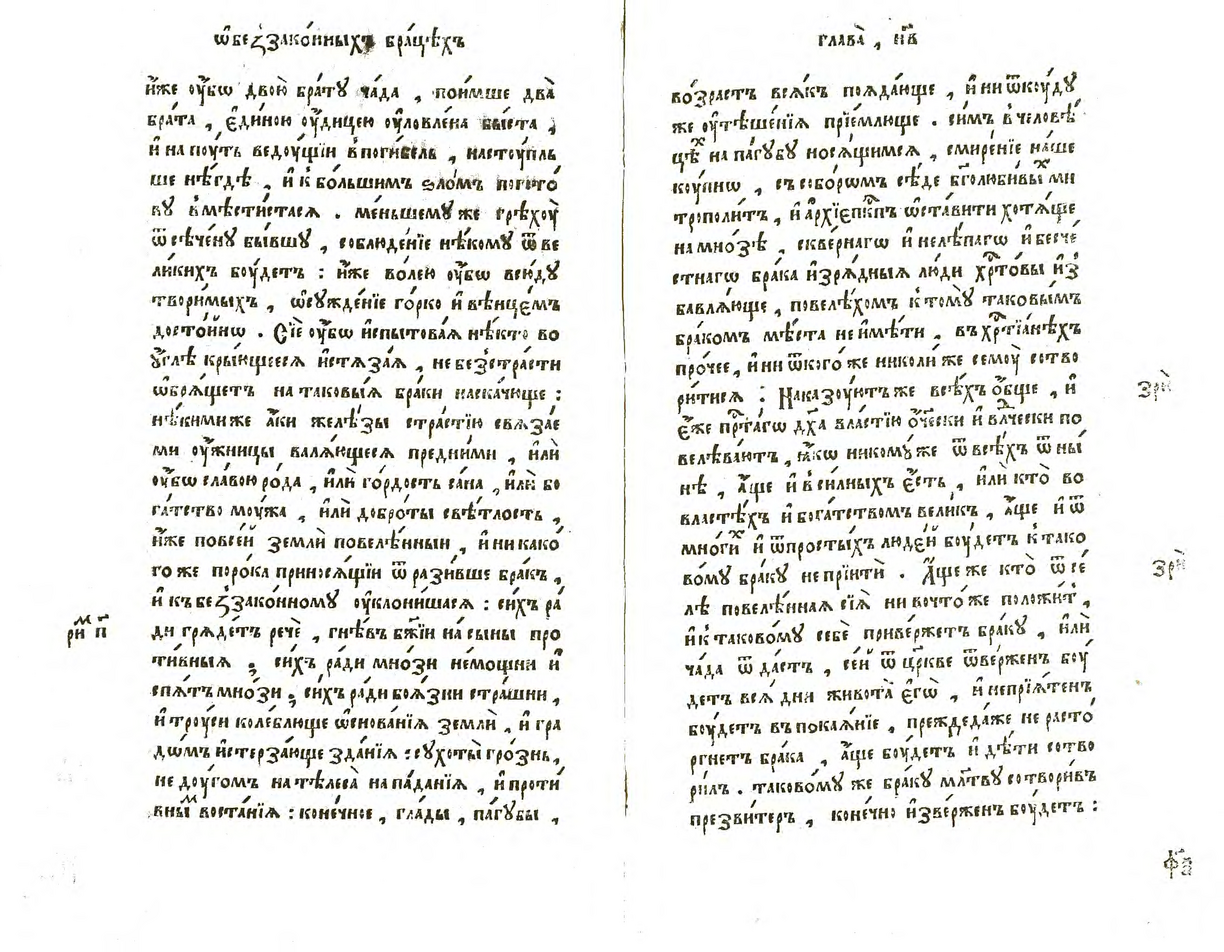 ѡ҆беꙁзако́нныхъ бра́цѣхъ
и҆́же ᲂу҆́бѡ двою̀ бра́тꙋ ча́да , пои́мше два̀
бра́та , є҆ди́ною ᲂу҆́дицею ᲂу҆ловле́на бы́ста ,
и҆ на поу́ть ведоу́щїи в̾поги́бель , настоу́пль
ше нѣ́гдѣ , и҆ к̾ бо́льшимъ ѕло́мъ погото́
вꙋ в̾мѣсти́стася . ме́ньшемꙋ же грѣхоу̀
ѿсѣче́нꙋ бы́вшꙋ , соблюде́нїе нѣ́комꙋ ѿ ве
ли́кихъ боу́детъ : и҆́же во́лею ᲂу҆́бѡ всю́дꙋ
твори́мыхъ , ѡ҆сꙋжде́нїе го́рко и҆ вѣнце́мъ
досто́йнѡ . Сїѐ ᲂу҆́бѡ и҆спытова́я нѣ́кто во
ꙋ҆́глѣ кры́ющееся и҆стяза́я , не без̾стра́сти
ѡ҆бря́щетъ на таковы́я бра́ки наска́чюще :
нѣ́кими же а҆́ки желѣ́зы стра́стїю свя́зае
ми ᲂу҆́жницы валя́ющеся пре́дними , и҆лѝ
ᲂу҆́бѡ сла́вою ро́да , и҆лѝ го́рдость са́на , и҆лѝ бо
га́тство моу́жа , и҆лѝ добро́ты свѣ́тлость ,
и҆́же по всѐй землѝ повелѣ́нныи , и҆ ни како́
го же поро́ка принося́щїи ѿрази́вше бра́къ ,
и҆ къ беꙁзако́нномꙋ ᲂу҆клони́шася : си́хъ ра́
ди гряде́тъ речѐ , гнѣ́въ бж҃їи на сы́ны про
ти́вныя ; си́хъ ра́ди мно́зи не́мощни и҆
спя́тъ мно́зи ; си́хъ ра́ди боя́зни стра́шни ,
и҆ троу́си коле́блюще ѡ҆снова́нїя землѝ , и҆ гра
до́мъ и҆стерза́юще зда́нїя : сꙋхоты̀ гро́зны ,
не доу́гомъ на тѣлеса̀ напа́данїя , и҆ проти́
вныⷨ воста́нїя : коне́чное , гла́ды , па́гꙋбы ,
риⷨ п҃
глава̀ , н҃в
во́зрастъ вся́къ пояда́юще , и҆ ни ѿкоу́дꙋ
же ᲂу҆тѣше́нїя прїе́млюще . си́мъ в̾ человѣ́
цѣⷯ на па́гꙋбꙋ нося́щимся , смире́нїе на́ше
коу́пнѡ , съ собо́ромъ сѣ́де бг҃олюби́выⷯ ми
трополи́тъ , и҆ а҆рхїєпⷭ҇кпъ ѡ҆ста́вити хотя́ще
на мно́зѣ , скве́рнагѡ и҆ нелѣ́пагѡ и҆ бесче́
стнагѡ бра́ка и҆зря́дныя лю́ди хрⷭ҇то́вы и҆з̾
бавля́юще , повелѣ́хомъ к̾томꙋ̀ таковы́мъ
бра́комъ мѣ́ста не и҆мѣ́ти , въ хрⷭ҇тїа́нѣхъ
про́чее , и҆ ни ѿкого́ же николи́ же семоу̀ сотво
ри́тися : Наказоу́ютъ же всѣ́хъ о҆́бще , и҆
є҆́же прⷭ҇та́гѡ дх҃а вла́стїю о҆те́чески и҆ влⷣчески по
велѣва́ютъ , ꙗ҆́кѡ никомꙋ́же ѿ всѣ́хъ ѿ ны́
нѣ , а҆́ще и҆ в̾ си́лныхъ є҆́сть , и҆лѝ кто̀ во
власте́хъ и҆ бога́тствомъ вели́къ , а҆́ще и҆ ѿ
мно́гиⷯ и҆ ѿ просты́хъ люде́й боу́детъ к̾ тако
во́мꙋ бра́кꙋ не прїитѝ . А҆́ще же кто̀ ѿсе́
лѣ повелѣ́нная сїя̀ ни во что́ же поло́житⷮ ,
и҆ к̾ таково́мꙋ себѐ приве́ржетъ бра́кꙋ , и҆лѝ
ча́да ѿда́стъ , се́й ѿ цр҃кве ѿве́рженъ боу́
детъ вся̀ дни живота̀ є҆гѡ̀ , и҆ непрїя́тенъ
боу́детъ въ покая́нїе , пре́жде да́же не расто́
ргнетъ бра́ка , а҆́ще боу́детъ и҆ дѣ́ти сотво
ри́лъ . таково́мꙋ же бра́кꙋ мл҃твꙋ сотвори́въ
презви́теръ , коне́чно и҆зве́рженъ боу́детъ :
зрѝ
зрѝ
ф҃а